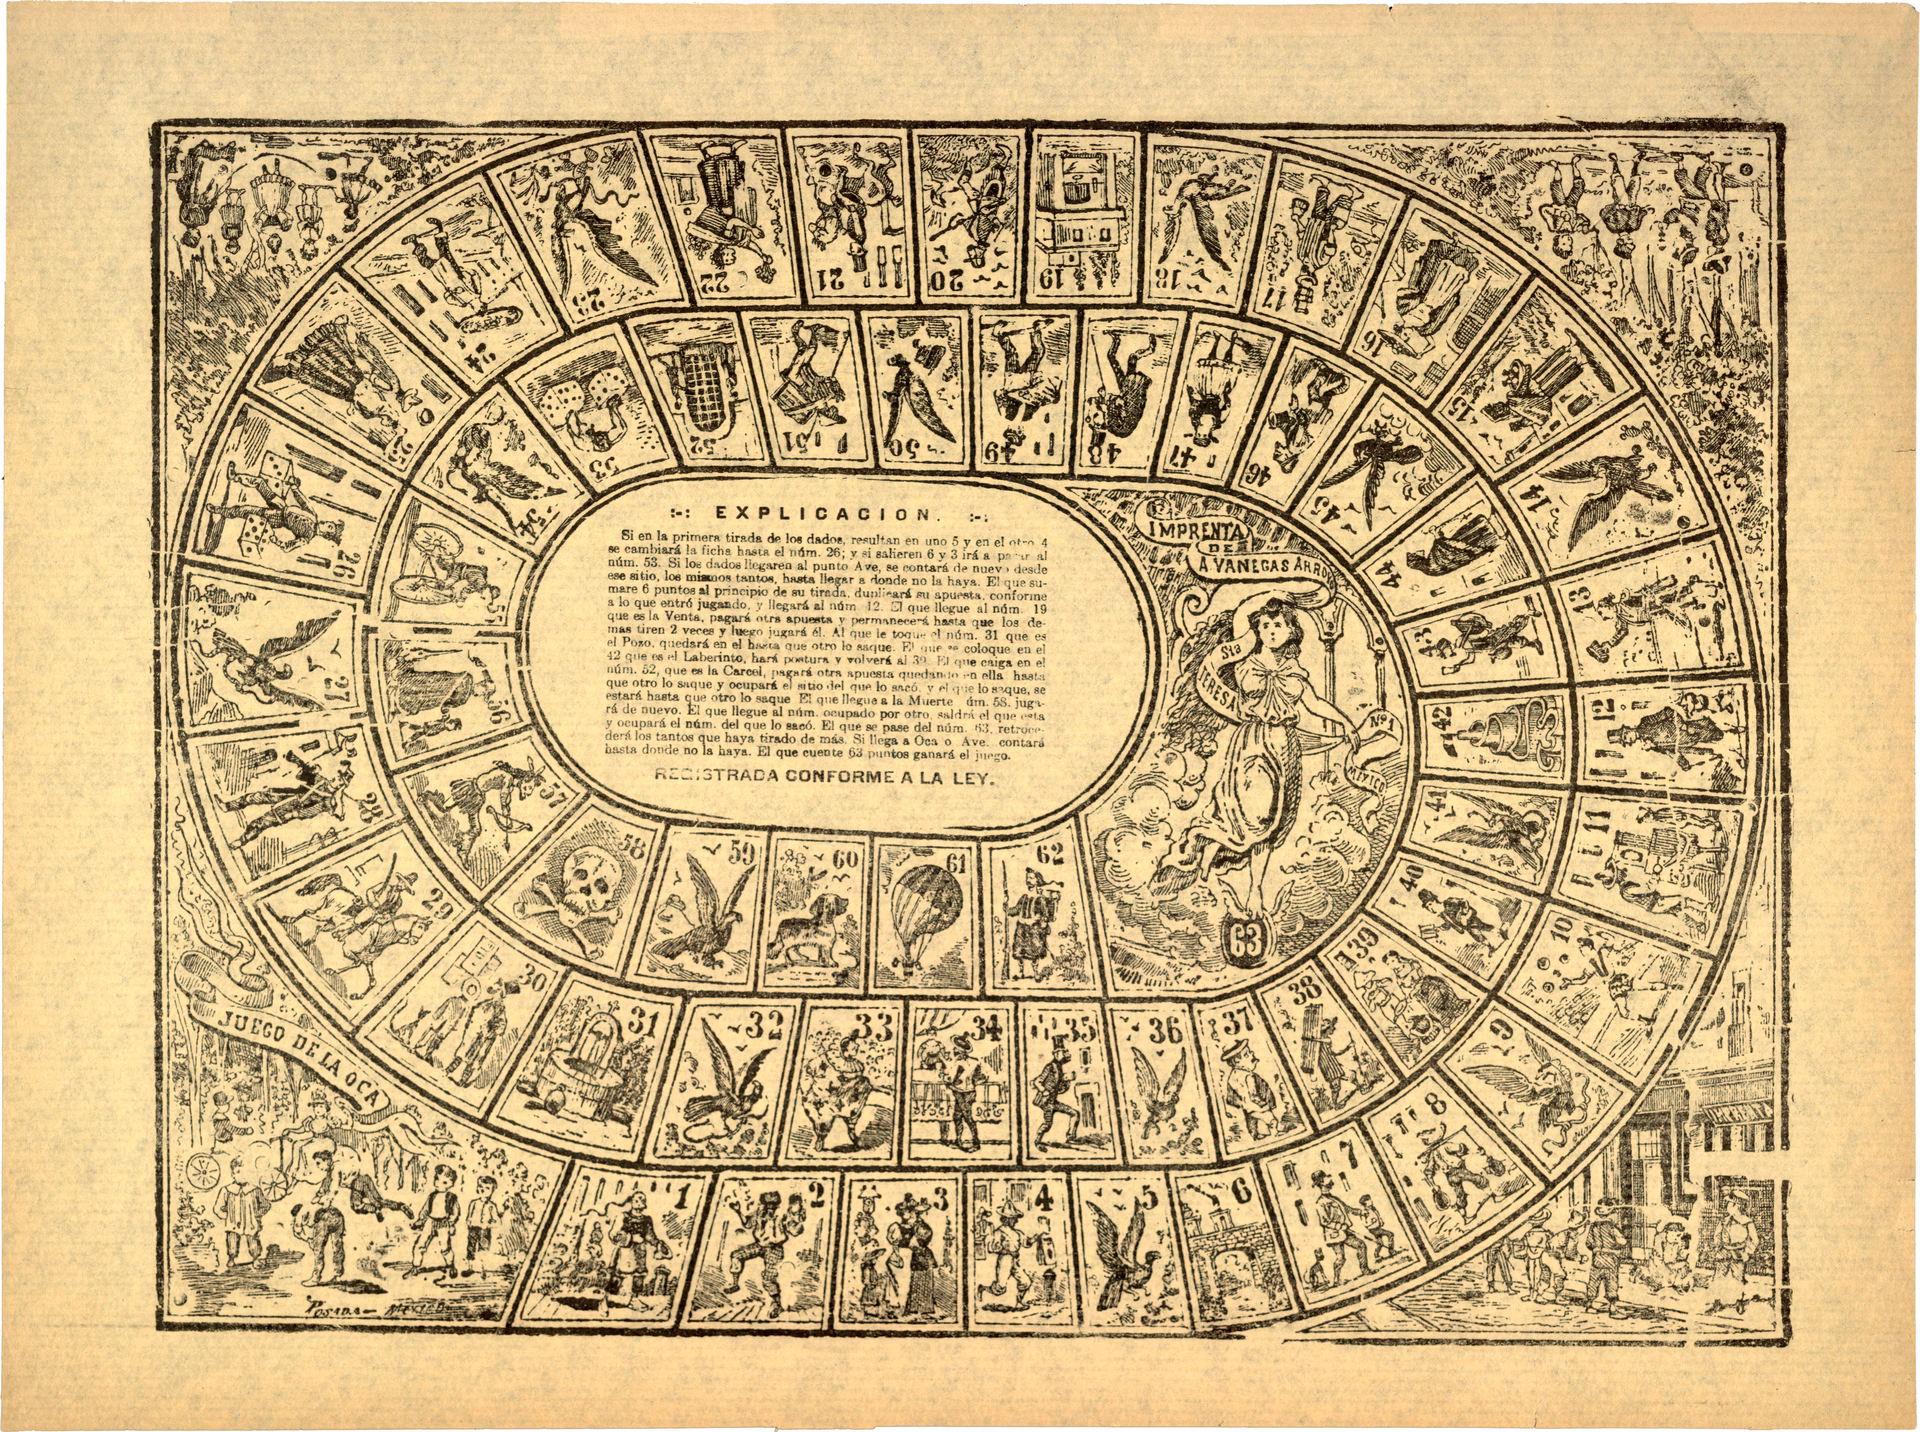 :-: EXPLICACION. :-:
Si en la primera tirada de los dados, resultan en uno 5 y en el otro 4
se cambiará la ficha hasta el núm. 26; y si salieren 6 y 3 irá a parar al
núm. 53. Si los dados llegaren al punto Ave, se contará de nuevo desde
ese sitio, los mismos tantos, hasta llegar a donde no la haya. El que su-
mare 6 puntos al principio de su tirada, duplicará su apuesta, conforme
a lo que entró jugando, y llegará al núm 12. El que llegue al núm. 19
que es la Venta, pagará otra apuesta y permanecerá hasta que los de-
mas tiren 2 veces y luego jugará él. Al que le toque el núm. 31 que es
el Pozo, quedará en el hasta que otro lo saque. El que se coloque en el
42 que es el Laberinto, hará postura y volverá al 39. El que caiga en el
núm. 52, que es la Carcel, pagará otra apuesta quedando en ella hasta
que otro lo saque y ocupará el sitio del que lo sacó, y el que lo saque, se
estará hasta que otro lo saque El que llegue a la Muerte úm. 58. juga-
rá de nuevo. El que llegue al núm. ocupado por otro, saldrá el que esta
y ocupará el núm. del que lo sacó. El que se pase del núm. 63, retroce-
derá los tantos que haya tirado de más. Si llega a Oca o Ave. contará
hasta donde no la haya. El que cuente 63 puntos ganará el juego.
REGISTRADA CONFORME A LA LEY.
IMPRENTA
DE
A VANEGAS ARROYO
Sta
TERESA
Nº 1
MEXICO
JUEGO DE LA OCA
POSADA — MEXICO
1
2
3
4
5
6
7
8
9
10
11
12
13
14
15
16
17
18
19
20
21
22
23
24
25
26
27
28
29
30
31
32
33
34
35
36
37
38
39
40
41
42
43
44
45
46
47
48
49
50
51
52
53
54
55
56
57
58
59
60
61
62
63